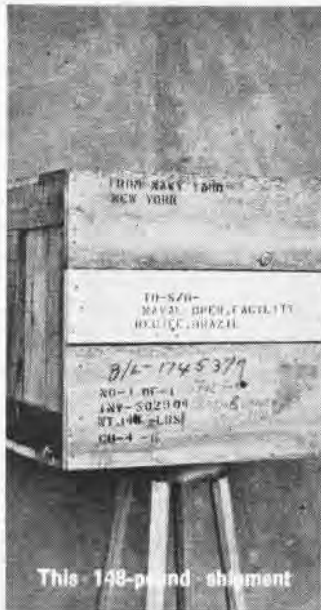 FROM NAVY YARD-
NEW YORK
TO-S/O-
NAVAL OPER. FACILITY
RECIFE, BRAZIL
B/L-1745377
NO-1 OF-1
INV-502909
WT.148-LBS
CU-4
This 148-pound shipment